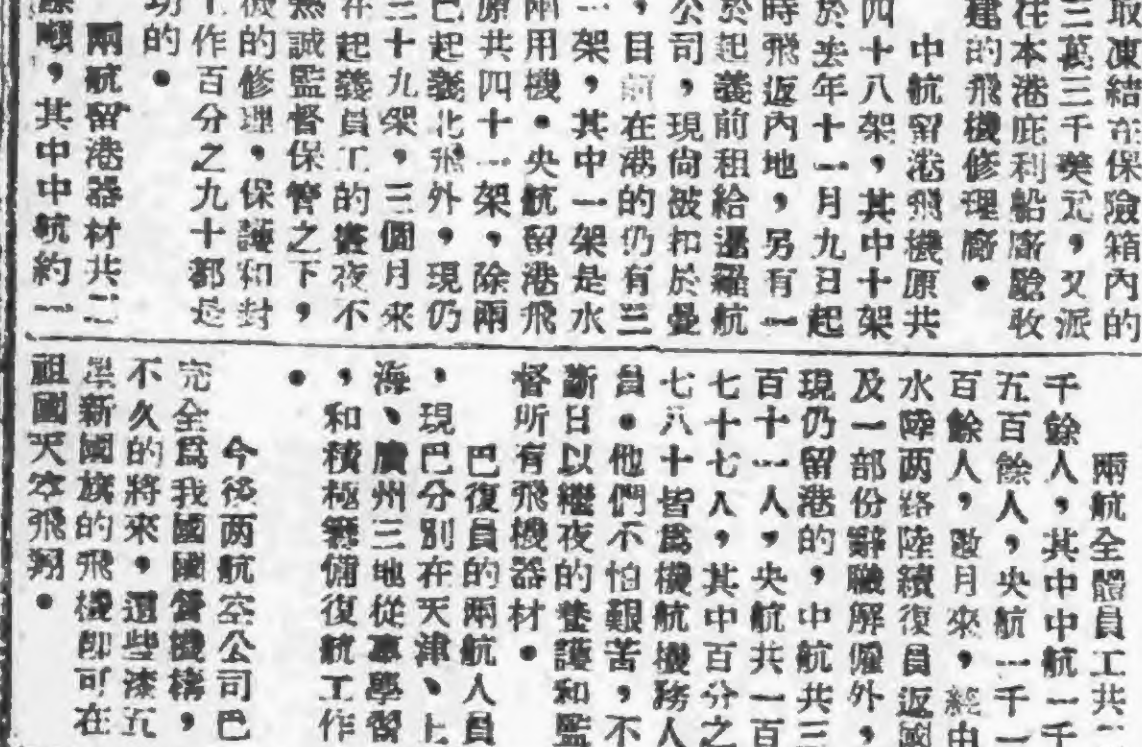 取凍結在保險箱內的
三萬三千美元，又派
往本港庇利船廠驗收
建的飛機修理廠。
中航留港飛機原共
四十八架，其中十架
於去年十一月九日起
時飛返內地，另有一
於起義前租給暹羅航
公司，現尙被扣於曼
，目前在港的仍有三
一架，其中一架是水
兩用機。央航留港飛
原共四十一架，除兩
巳起義北飛外，現仍
三十九架，三個月來
在起義員工的晝夜不
熱誠監督保管之下，
機的修理，保護和封
工作百分之九十都是
功的。
兩航留港器材共二
餘噸，其中中航約一
兩航全體員工共二
千餘人，其中中航一千
五百餘人，央航一千一
百餘人，數月來，經由
水陸两路陸續復員返國
及一部份辭職解僱外，
現仍留港的，中航共三
百十一人，央航共一百
七十七人，其中百分之
七八十皆爲機航機務人
員。他們不怕艱苦，不
斷日以繼夜的養護和監
督所有飛機器材。
巴復員的兩航人員
，現巴分別在天津、上
海、廣州三地從事學習
，和積極籌備復航工作
。
今後两航空公司巴
完全爲我國國營機構，
不久的將來，這些漆五
星新國旗的飛機即可在
祖國天空飛翔。